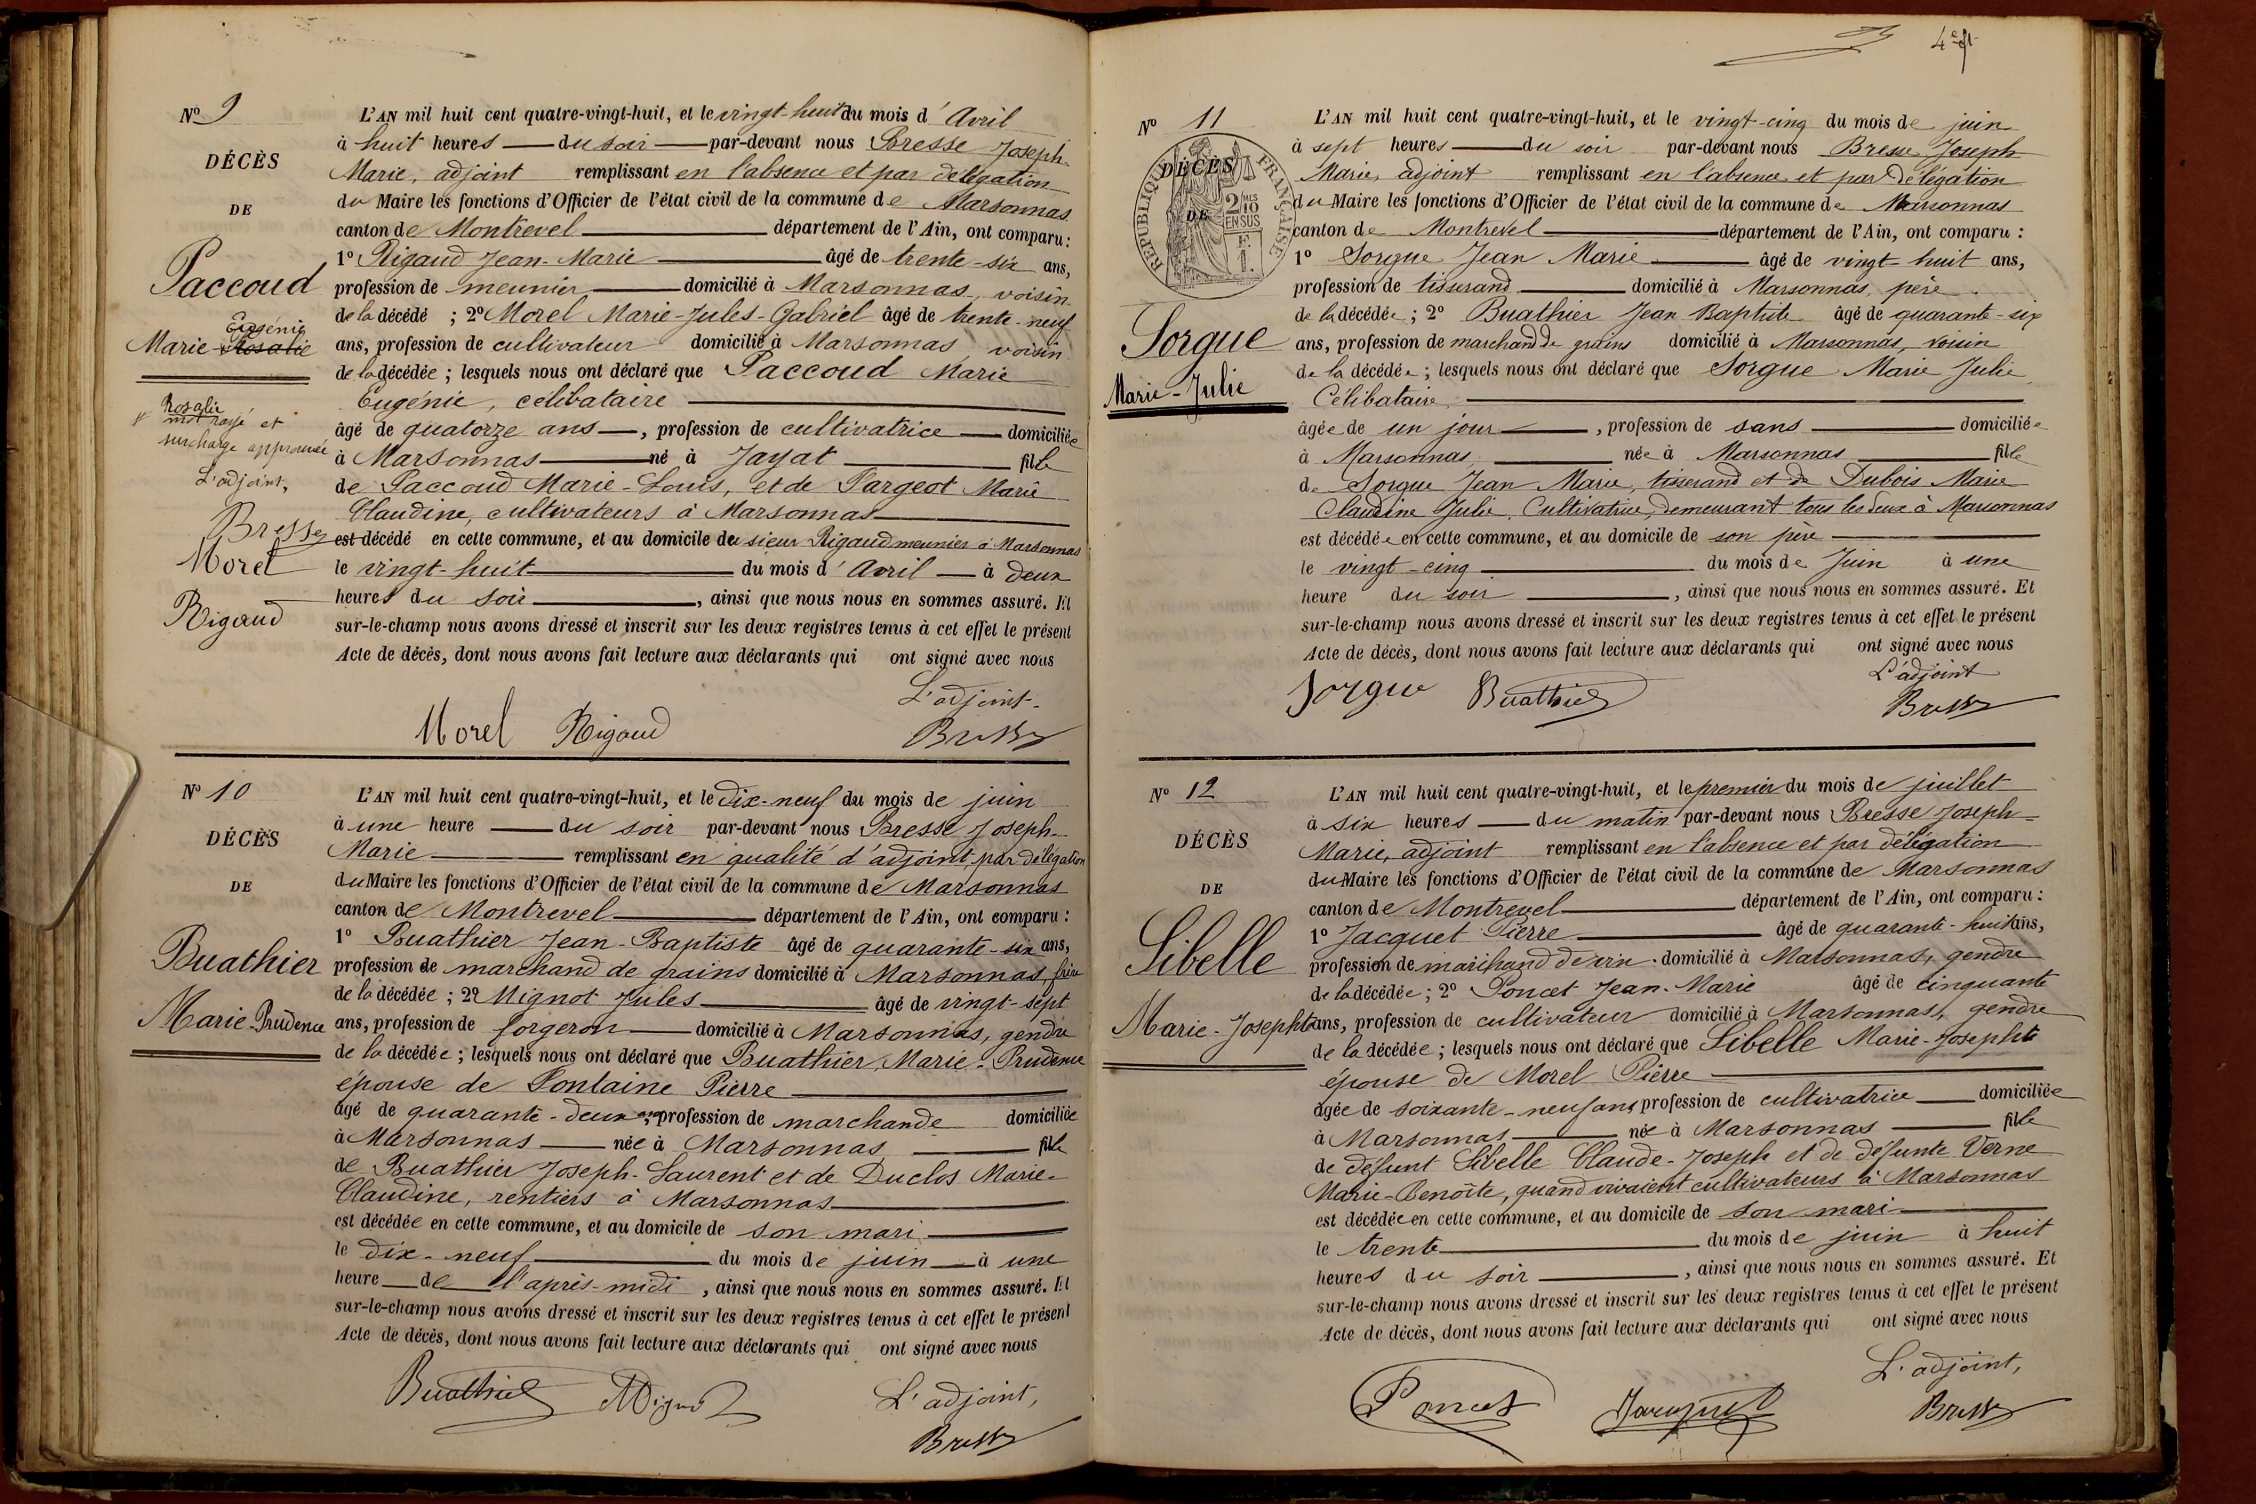 Nº 9
DÉCÈS
DE
Paccoud
Eugénie
Marie-Rosalie
Rosalie
mot rayé et
surcharge approuvée
L'adjoint,
Bresse
Morel
Rigaud
L'AN mil huit cent quatre-vingt-huit, et le vingt-huit du mois d'Avril
à huit heures du soir par-devant nous Bresse Joseph-
Marie, adjoint remplissant en l'absence et par délégation
du Maire les fonctions d'Officier de l'état civil de la commune de Marsonnas
canton de Montrevel département de l'Ain, ont comparu :
1º Rigaud Jean-Marie âgé de trente-six ans,
profession de meunier domicilié à Marsonnas, voisin
de la décédé ; 2º Morel Marie-Jules-Gabriel âgé de trente-neuf
ans, profession de cultivateur domicilié à Marsonnas, voisin
de la décédée ; lesquels nous ont déclaré que Paccoud Marie
Eugénie, célibataire
âgé de quatorze ans, profession de cultivatrice domiciliée
à Marsonnas né à Jayat fille
de Paccoud Marie-Louis, et de Pargeot Marie
Claudine, cultivateurs à Marsonnas
est décédé en cette commune, et au domicile du sieur Rigaud meunier à Marsonnas
le vingt-huit du mois d'Avril à deux
heures du soir, ainsi que nous nous en sommes assuré. Et
sur-le-champ nous avons dressé et inscrit sur les deux registres tenus à cet effet le présent
Acte de décès, dont nous avons fait lecture aux déclarants qui ont signé avec nous
L'adjoint.
Morel Rigaud Bresse
Nº 10
DÉCÈS
DE
Buathier
Marie-Prudence
L'AN mil huit cent quatre-vingt-huit, et le dix-neuf du mois de juin
à une heure du soir par-devant nous Bresse Joseph-
Marie remplissant en qualité d'adjoint par délégation
du Maire les fonctions d'Officier de l'état civil de la commune de Marsonnas
canton de Montrevel département de l'Ain, ont comparu :
1º Buathier Jean-Baptiste âgé de quarante-six ans,
profession de marchand de grains domicilié à Marsonnas, frère
de la décédée ; 2º Mignot Jules âgé de vingt-sept
ans, profession de forgeron domicilié à Marsonnas, gendre
de la décédée ; lesquels nous ont déclaré que Buathier, Marie-Prudence
épouse de Fontaine Pierre
âgé de quarante-deux ans, profession de marchande domiciliée
à Marsonnas née à Marsonnas fille
de Buathier Joseph-Laurent et de Duclos Marie-
Claudine, rentiers à Marsonnas
est décédée en cette commune, et au domicile de son mari
le dix-neuf du mois de juin à une
heure de l'après-midi, ainsi que nous nous en sommes assuré. Et
sur-le-champ nous avons dressé et inscrit sur les deux registres tenus à cet effet le présent
Acte de décès, dont nous avons fait lecture aux déclarants qui ont signé avec nous
L'adjoint,
Buathier Mignot Bresse
4e ft
Nº 11
DÉCÈS
DE
RÉPUBLIQUE FRANÇAISE
2/10 EN SUS
Sorgue
Marie-Julie
L'AN mil huit cent quatre-vingt-huit, et le vingt-cinq du mois de juin
à sept heures du soir par-devant nous Bresse Joseph
Marie, adjoint remplissant en l'absence et par délégation
du Maire les fonctions d'Officier de l'état civil de la commune de Marsonnas
canton de Montrevel département de l'Ain, ont comparu :
1º Sorgue Jean Marie âgé de vingt-huit ans,
profession de tisserand domicilié à Marsonnas, père
de la décédée ; 2º Buathier Jean Baptiste âgé de quarante-six
ans, profession de marchand de grains domicilié à Marsonnas, voisin
de la décédée ; lesquels nous ont déclaré que Sorgue Marie Julie
Célibataire,
âgée de un jour, profession de sans domiciliée
à Marsonnas, née à Marsonnas fille
de Sorgue Jean Marie, tisserand et de Dubois Marie
Claudine Julie, Cultivatrice, demeurant tous les deux à Marsonnas
est décédée en cette commune, et au domicile de son père
le vingt-cinq du mois de Juin à une
heure du soir, ainsi que nous nous en sommes assuré. Et
sur-le-champ nous avons dressé et inscrit sur les deux registres tenus à cet effet le présent
Acte de décès, dont nous avons fait lecture aux déclarants qui ont signé avec nous
L'adjoint
Sorgue Buathier Bresse
Nº 12
DÉCÈS
DE
Sibelle
Marie-Josephte
L'AN mil huit cent quatre-vingt-huit, et le premier du mois de juillet
à six heures du matin par-devant nous Bresse Joseph-
Marie, adjoint remplissant en l'absence et par délégation
du Maire les fonctions d'Officier de l'état civil de la commune de Marsonnas
canton de Montrevel département de l'Ain, ont comparu :
1º Jacquet Pierre âgé de quarante-huit ans,
profession de marchand de vin domicilié à Marsonnas, gendre
de la décédée ; 2º Poncet Jean-Marie âgé de cinquante
ans, profession de cultivateur domicilié à Marsonnas, gendre
de la décédée ; lesquels nous ont déclaré que Sibelle Marie-Josephte
épouse de Morel Pierre
âgée de soixante-neuf ans, profession de cultivatrice domiciliée
à Marsonnas née à Marsonnas fille
de défunt Sibelle Claude-Joseph et de défunte Verne
Marie-Benoîte, quand vivaient cultivateurs à Marsonnas
est décédée en cette commune, et au domicile de son mari
le trente du mois de juin à huit
heures du soir, ainsi que nous nous en sommes assuré. Et
sur-le-champ nous avons dressé et inscrit sur les deux registres tenus à cet effet le présent
Acte de décès, dont nous avons fait lecture aux déclarants qui ont signé avec nous
L'adjoint,
Poncet Jacquet Bresse